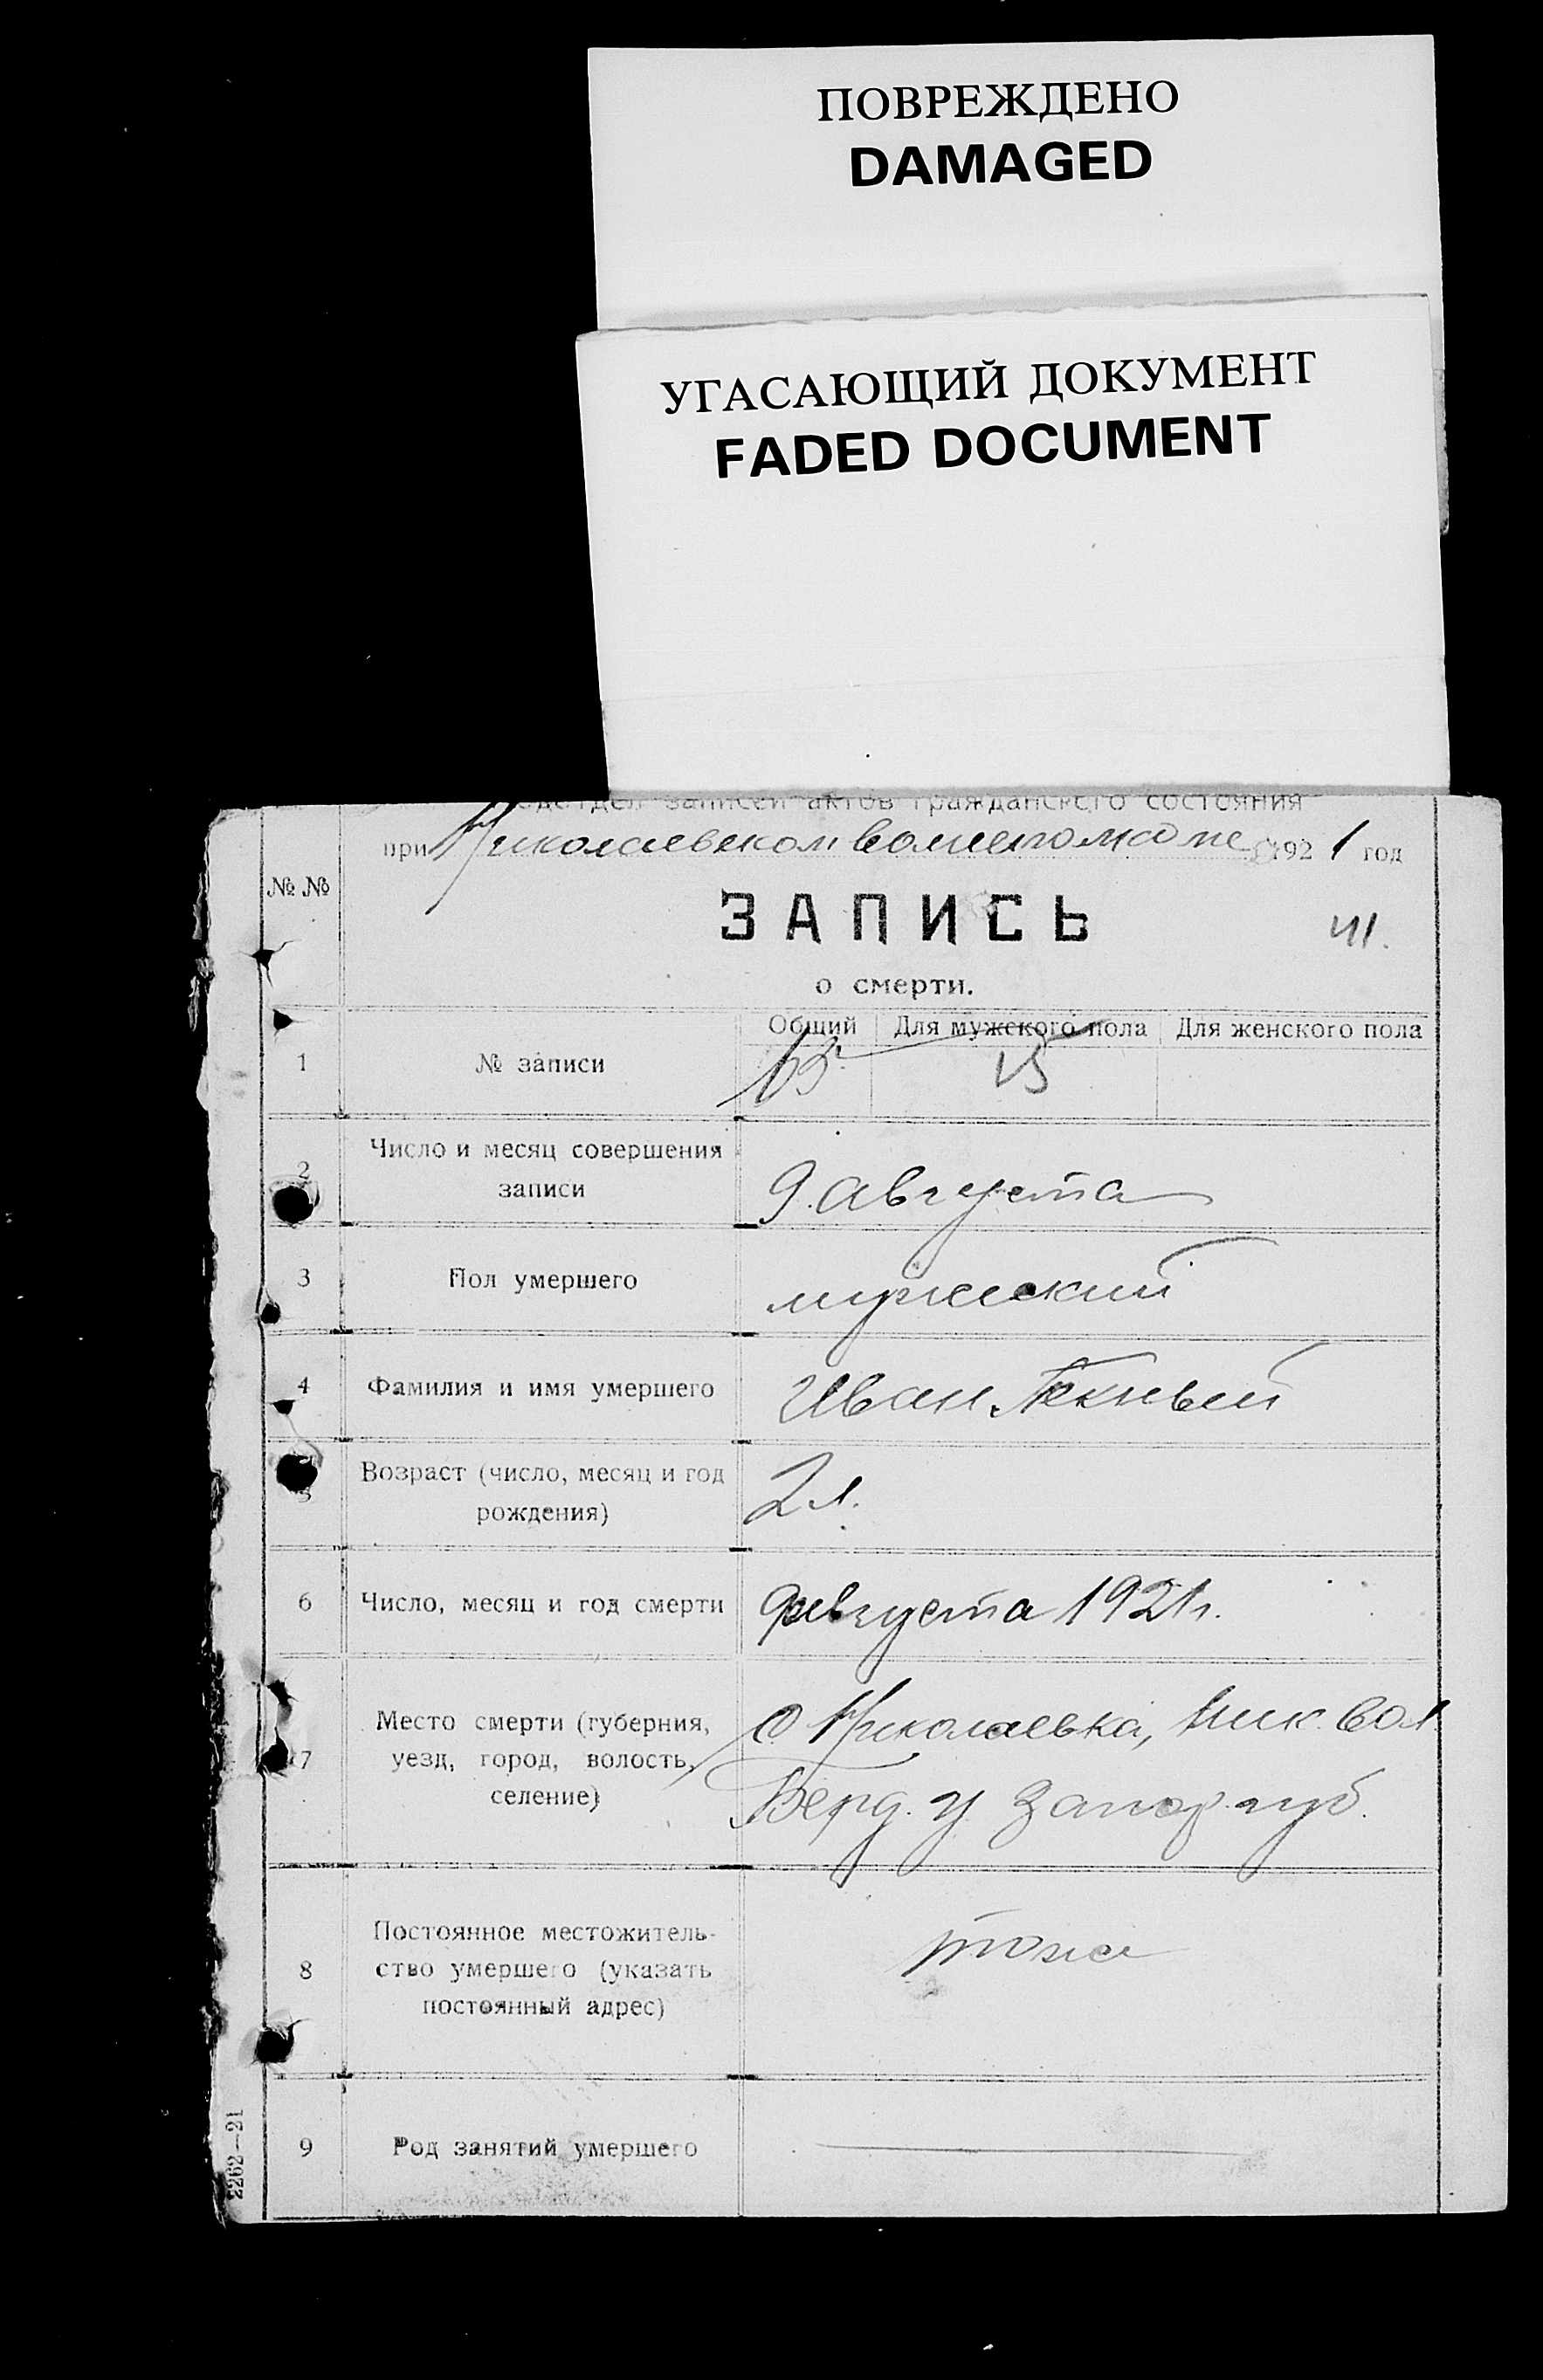 ПОВРЕЖДЕНО
DAMAGED
УГАСАЮЩИЙ ДОКУМЕНТ
FADED DOCUMENT
записей актов гражданского состояния
при Николаевском 1921 год
№ №
ЗАПИСЬ
41.
о смерти.
Общий Для мужского пола Для женского пола
1 № записи 15
2 Число и месяц совершения
записи
9. августа
3 Пол умершего мужеский
4 Фамилия и имя умершего Иван
5 Возраст (число, месяц и год
рождения)
2 л.
6 Число, месяц и год смерти 9 августа 1921 г.
7 Место смерти (губерния,
уезд, город, волость,
селение)
с Николаевка, Ник. вол
Берд. у Запор. губ.
8 Постоянное местожитель-
ство умершего (указать
постоянный адрес)
тоже
9 Род занятий умершего
2262—21